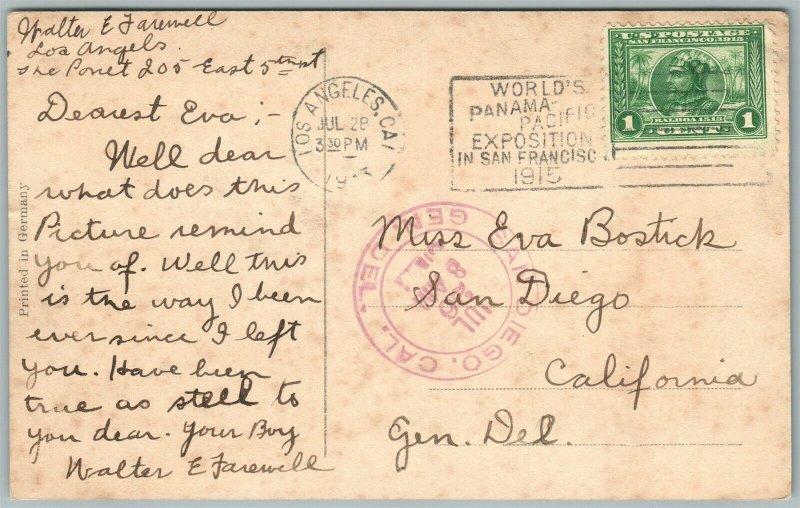 Walter E Farewell
Los Angels
205 East 5th st
Dearest Eva ; -
Well dear
what does this
Picture remind
you of. Well this
is the way I been
ever since I left
you. Have been
true as stell to
you dear. Your Boy
Walter E Farewell
Printed in Germany
LOS ANGELES, CAL
JUL 28
3 30 PM
WORLD'S
PANAMA-
PACIFIC
EXPOSITION
IN SAN FRANCISC
1915
U.S. POSTAGE
SAN FRANCISCO, 1915
BALBOA 1513
1 CENT 1
Miss Eva Bostick
San Diego
California
Gen. Del.
SAN DIEGO, CAL.
GEN. DEL.
JUL